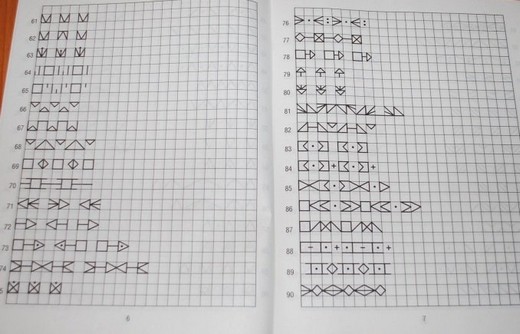 61
62
63
64
65
66
67
68
69
70
71
72
73
74
5
6
76
77
78
79
80
81
82
83
84
85
86
87
88
89
90
7